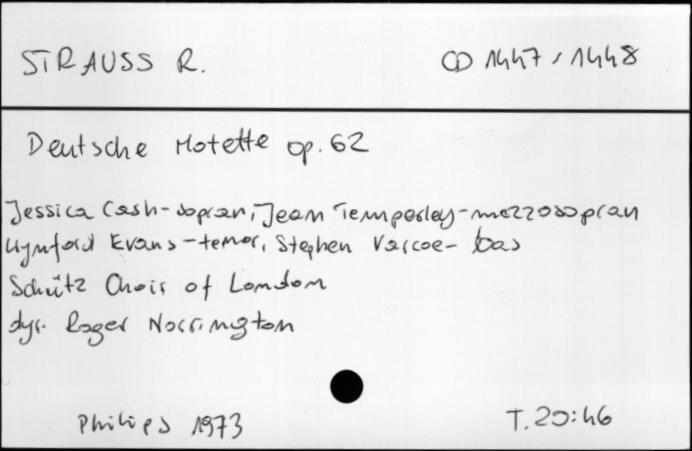 STRAUSS R. CD 1447, 1448
Deutsche Motette op. 62
Jessica Cash-sopran, Jean Temperley-mezzosopran
Wynford Evans-tenor, Stephen Varcoe-bas
Schütz Choir of London
dyr. Roger Norrington
Philips 1973 T. 20:46